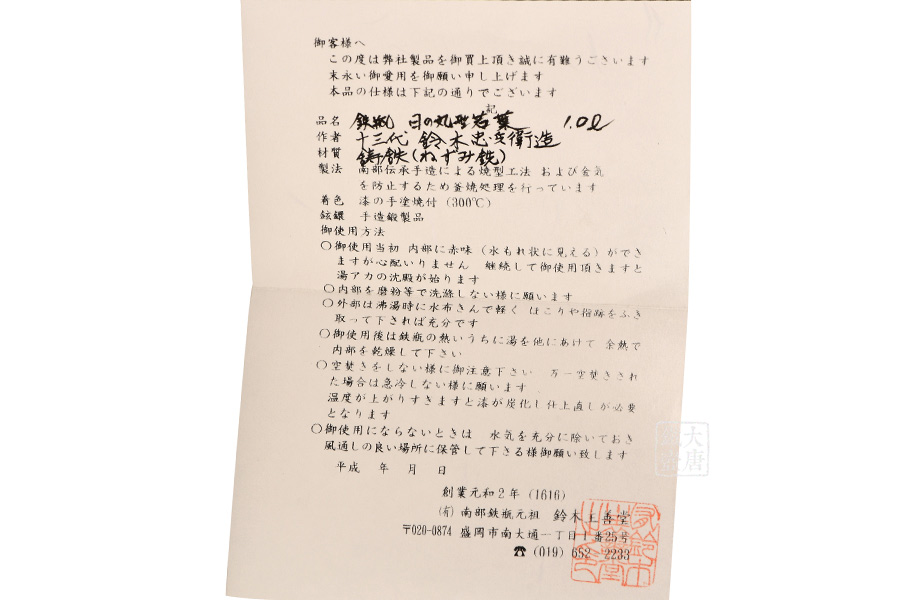 御客様へ
この度は弊社製品を御買上頂き誠に有難うございます
末永い御愛用を御願い申し上げます
本品の仕様は下記の通りでございます
記
品名 鉄瓶 日の丸型岩葉 1.0ℓ
作者 十三代 鈴木忠兵衛造
材質 鋳鉄(ねずみ銑)
製法 南部伝承手造による焼型工法 および金気
を防止するため釜焼処理を行っています
着色 漆の手塗焼付(300℃)
鉉鐶 手造鍛製品
御使用方法
○御使用当初 内部に赤味(水もれ状に見える)ができ
ますが心配いりません 継続して御使用頂きますと
湯アカの沈殿が始ります
○内部を磨粉等で洗滌しない様に願います
○外部は沸湯時に水布きんで軽く ほこりや指跡をふき
取って下されば充分です
○御使用後は鉄瓶の熱いうちに湯を他にあけて 余熱で
内部を乾燥して下さい
○空焚きをしない様に御注意下さい 万一空焚きされ
た場合は急冷しない様に願います
温度が上がりすぎますと漆が炭化し仕上直しが必要
となります
○御使用にならないときは 水気を充分に除いておき
風通しの良い場所に保管して下さる様御願い致します
平成 年 月 日
創業元和2年(1616)
(有) 南部鉄瓶元祖 鈴木主善堂
〒020-0874 盛岡市南大通一丁目1番25号
☎ (019) 652 2233
大唐